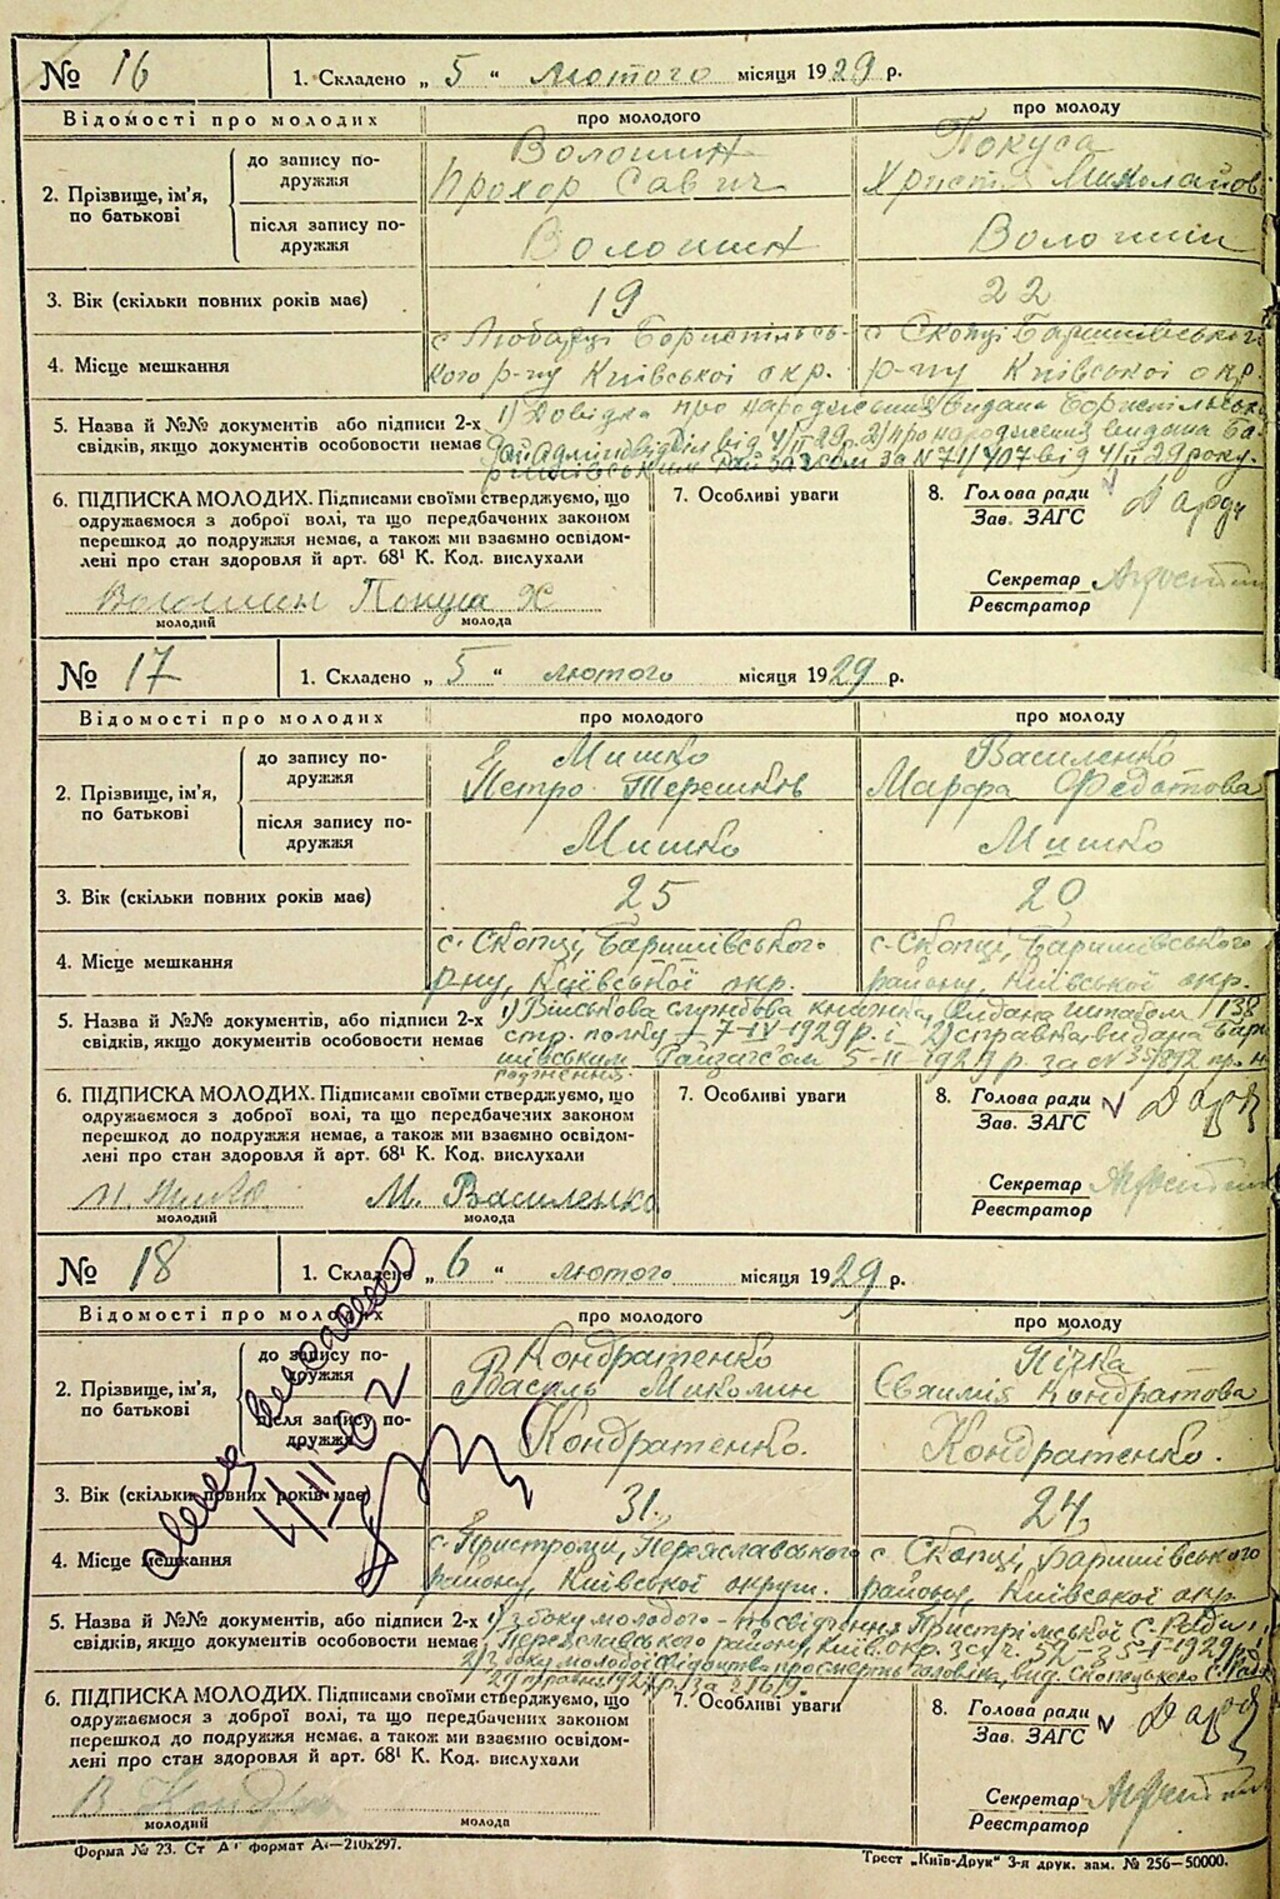 № 16 1. Складено „ 5 “ лютого місяця 1929 р.
Відомості про молодих про молодого про молоду
2. Прізвище, ім’я, по батькові
до запису по-
дружжя
Волошин Покуса
Прохор Савич Христ Миколайов
після запису по-
дружжя
Волошин Волошин
3. Вік (скільки повних років має) 19 22
4. Місце мешкання
с Любарці Бориспільсь- с Скопці Баришівського
кого р-ну Київської окр. р-ну Київської окр.
5. Назва й №№ документів або підписи 2-х
свідків, якщо документів особовости немає
1) Довідка про народження видана Бориспільськ
Рай Адмінвідділ від 4/II 29 р. 2) про народження видана Ба-
ришівським Рай за № 71/407 від 4/II 29 року.
6. ПІДПИСКА МОЛОДИХ. Підписами своїми стверджуємо, що
одружаємося з доброї волі, та що передбачених законом
перешкод до подружжя немає, а також ми взаємно освідом-
лені про стан здоровля й арт. 68¹ К. Код. вислухали
Волошин Покуса Х
молодий молода
7. Особливі уваги
8. Голова ради
Зав. ЗАГС
Секретар
Реєстратор
№ 17 1. Складено „ 5 “ лютого місяця 1929 р.
Відомості про молодих про молодого про молоду
2. Прізвище, ім’я, по батькові
до запису по-
дружжя
Мишко Василенко
Петро Терешков Марфа Федотова
після запису по-
дружжя
Мишко Мишко
3. Вік (скільки повних років має) 25 20
4. Місце мешкання
с. Скопці, Баришівського с. Скопці, Баришівського
р-ну, Київської окр. району, Київської окр.
5. Назва й №№ документів, або підписи 2-х
свідків, якщо документів особовости немає
1) Військова службова книжка, видана штабом 138
стр. полку 7-IV-1929 р. і 2) справка, видана Бари
шівським 5-II-1929 р. за № 35/892 про н
6. ПІДПИСКА МОЛОДИХ. Підписами своїми стверджуємо, що
одружаємося з доброї волі, та що передбачених законом
перешкод до подружжя немає, а також ми взаємно освідом-
лені про стан здоровля й арт. 68¹ К. Код. вислухали
М. Василенко
молодий молода
7. Особливі уваги
8. Голова ради
Зав. ЗАГС
Секретар
Реєстратор
№ 18 1. Складено „ 6 “ лютого місяця 1929 р.
Відомості про молодих про молодого про молоду
2. Прізвище, ім’я, по батькові
до запису по-
дружжя
Кондратенко Пічка
Василь Миколин Євхимія Кондратова
після запису по-
дружжя
Кондратенко. Кондратенко.
3. Вік (скільки повних років має) 31. 24
4. Місце мешкання
с. Пристроми, Переяславського с. Скопці, Баришівського
району, Київської округи. району, Київської окр.
5. Назва й №№ документів, або підписи 2-х
свідків, якщо документів особовости немає
1) з боку молодого – посвідчення Пристрімської С.-Ради
Переяславського району, Київ. окр. за ч. 52 – з 5-I-1929 р. і
2) з боку молодої свідоцтво про смерть чоловіка, вид. Скопецькою С.-Рад
6. ПІДПИСКА МОЛОДИХ. Підписами своїми стверджуємо, що
одружаємося з доброї волі, та що передбачених законом
перешкод до подружжя немає, а також ми взаємно освідом-
лені про стан здоровля й арт. 68¹ К. Код. вислухали
молодий молода
7. Особливі уваги
8. Голова ради
Зав. ЗАГС
Секретар
Реєстратор
Форма № 23. Ст формат А₄—210х297.
Трест „Київ-Друк“ 3-я друк. зам. № 256—50000.